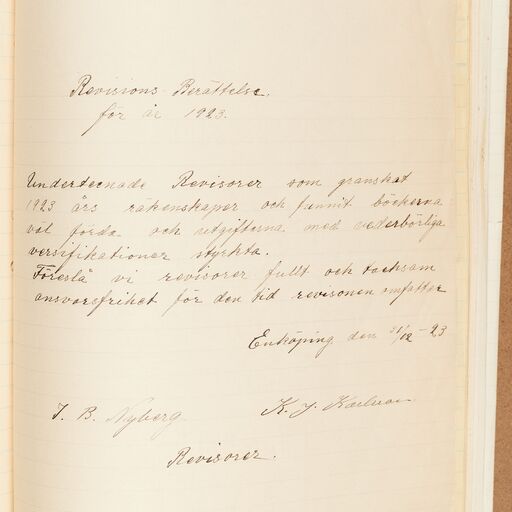 Revisions Berättelse.
för år 1923.
Undertecnade Revisorer som granskat
1923 års räkenskaper och funnit böckerna
väl förda och utgifterna med vederbörliga
versifikationer styrkta.
Föreslå vi revisorer fullt och tacksam
ansvarsfrihet för den tid revisonen omfattar
Enköping den 31/12 - 23
J. B. Nyberg K. J. Karlsson
Revisorer.